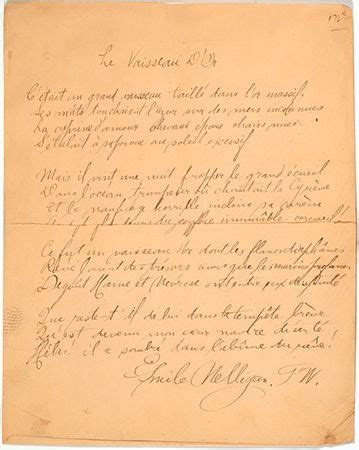 Le Vaisseau D'Or
C'était un grand vaisseau taillé dans l'or massif.
Ses mâts touchaient l'azur sur des mers inconnues
La cyprine d'amour cheveux épars chairs nues
S'étalait à sa proue au soleil excessif
Mais il vint une nuit frapper le grand écueil
Dans l'océan trompeur où chantait la Syrène
Et le naufrage horrible inclina sa carène
du gouffre immuable cercueil
Ce fut un vaisseau d'or dont les flancs diaphanes
Révélaient des trésors que les marins profanes
Dégoût Haine et Névrose ont entre eux disputé
Que reste-t-il de lui dans la tempête brève
Qu'est devenu mon cœur navire déserté
Hélas! il a sombré dans l'abîme du rêve!
Émile Nelligan